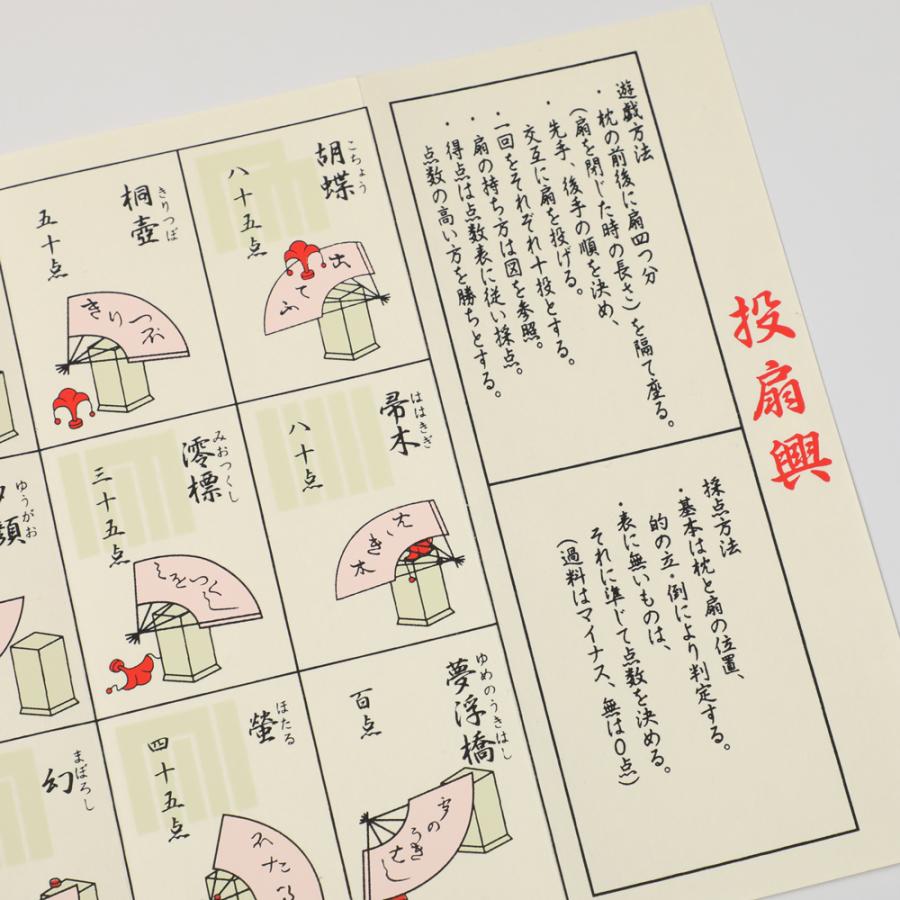 投扇興
遊戯方法
・枕の前後に扇四つ分
(扇を閉じた時の長さ)を隔て座る。
・先手、後手の順を決め、
交互に扇を投げる。
・一回をそれぞれ十投とする。
・扇の持ち方は図を参照。
・得点は点数表に従い採点。
点数の高い方を勝ちとする。
採点方法
・基本は枕と扇の位置、
的の立・倒により判定する。
・表に無いものは、
それに準じて点数を決める。
(過料はマイナス、無は〇点)
胡蝶
こちょう
八十五点
出
てふ
桐壺
きりつぼ
五十点
きりつぼ
帚木
ははきぎ
八十点
はゝき木
澪標
みおつくし
三十五点
みをつくし
ゆうがお
顔
夢浮橋
ゆめのうきはし
百点
夢のうきはし
螢
ほたる
四十五点
ほたる
幻
まぼろし